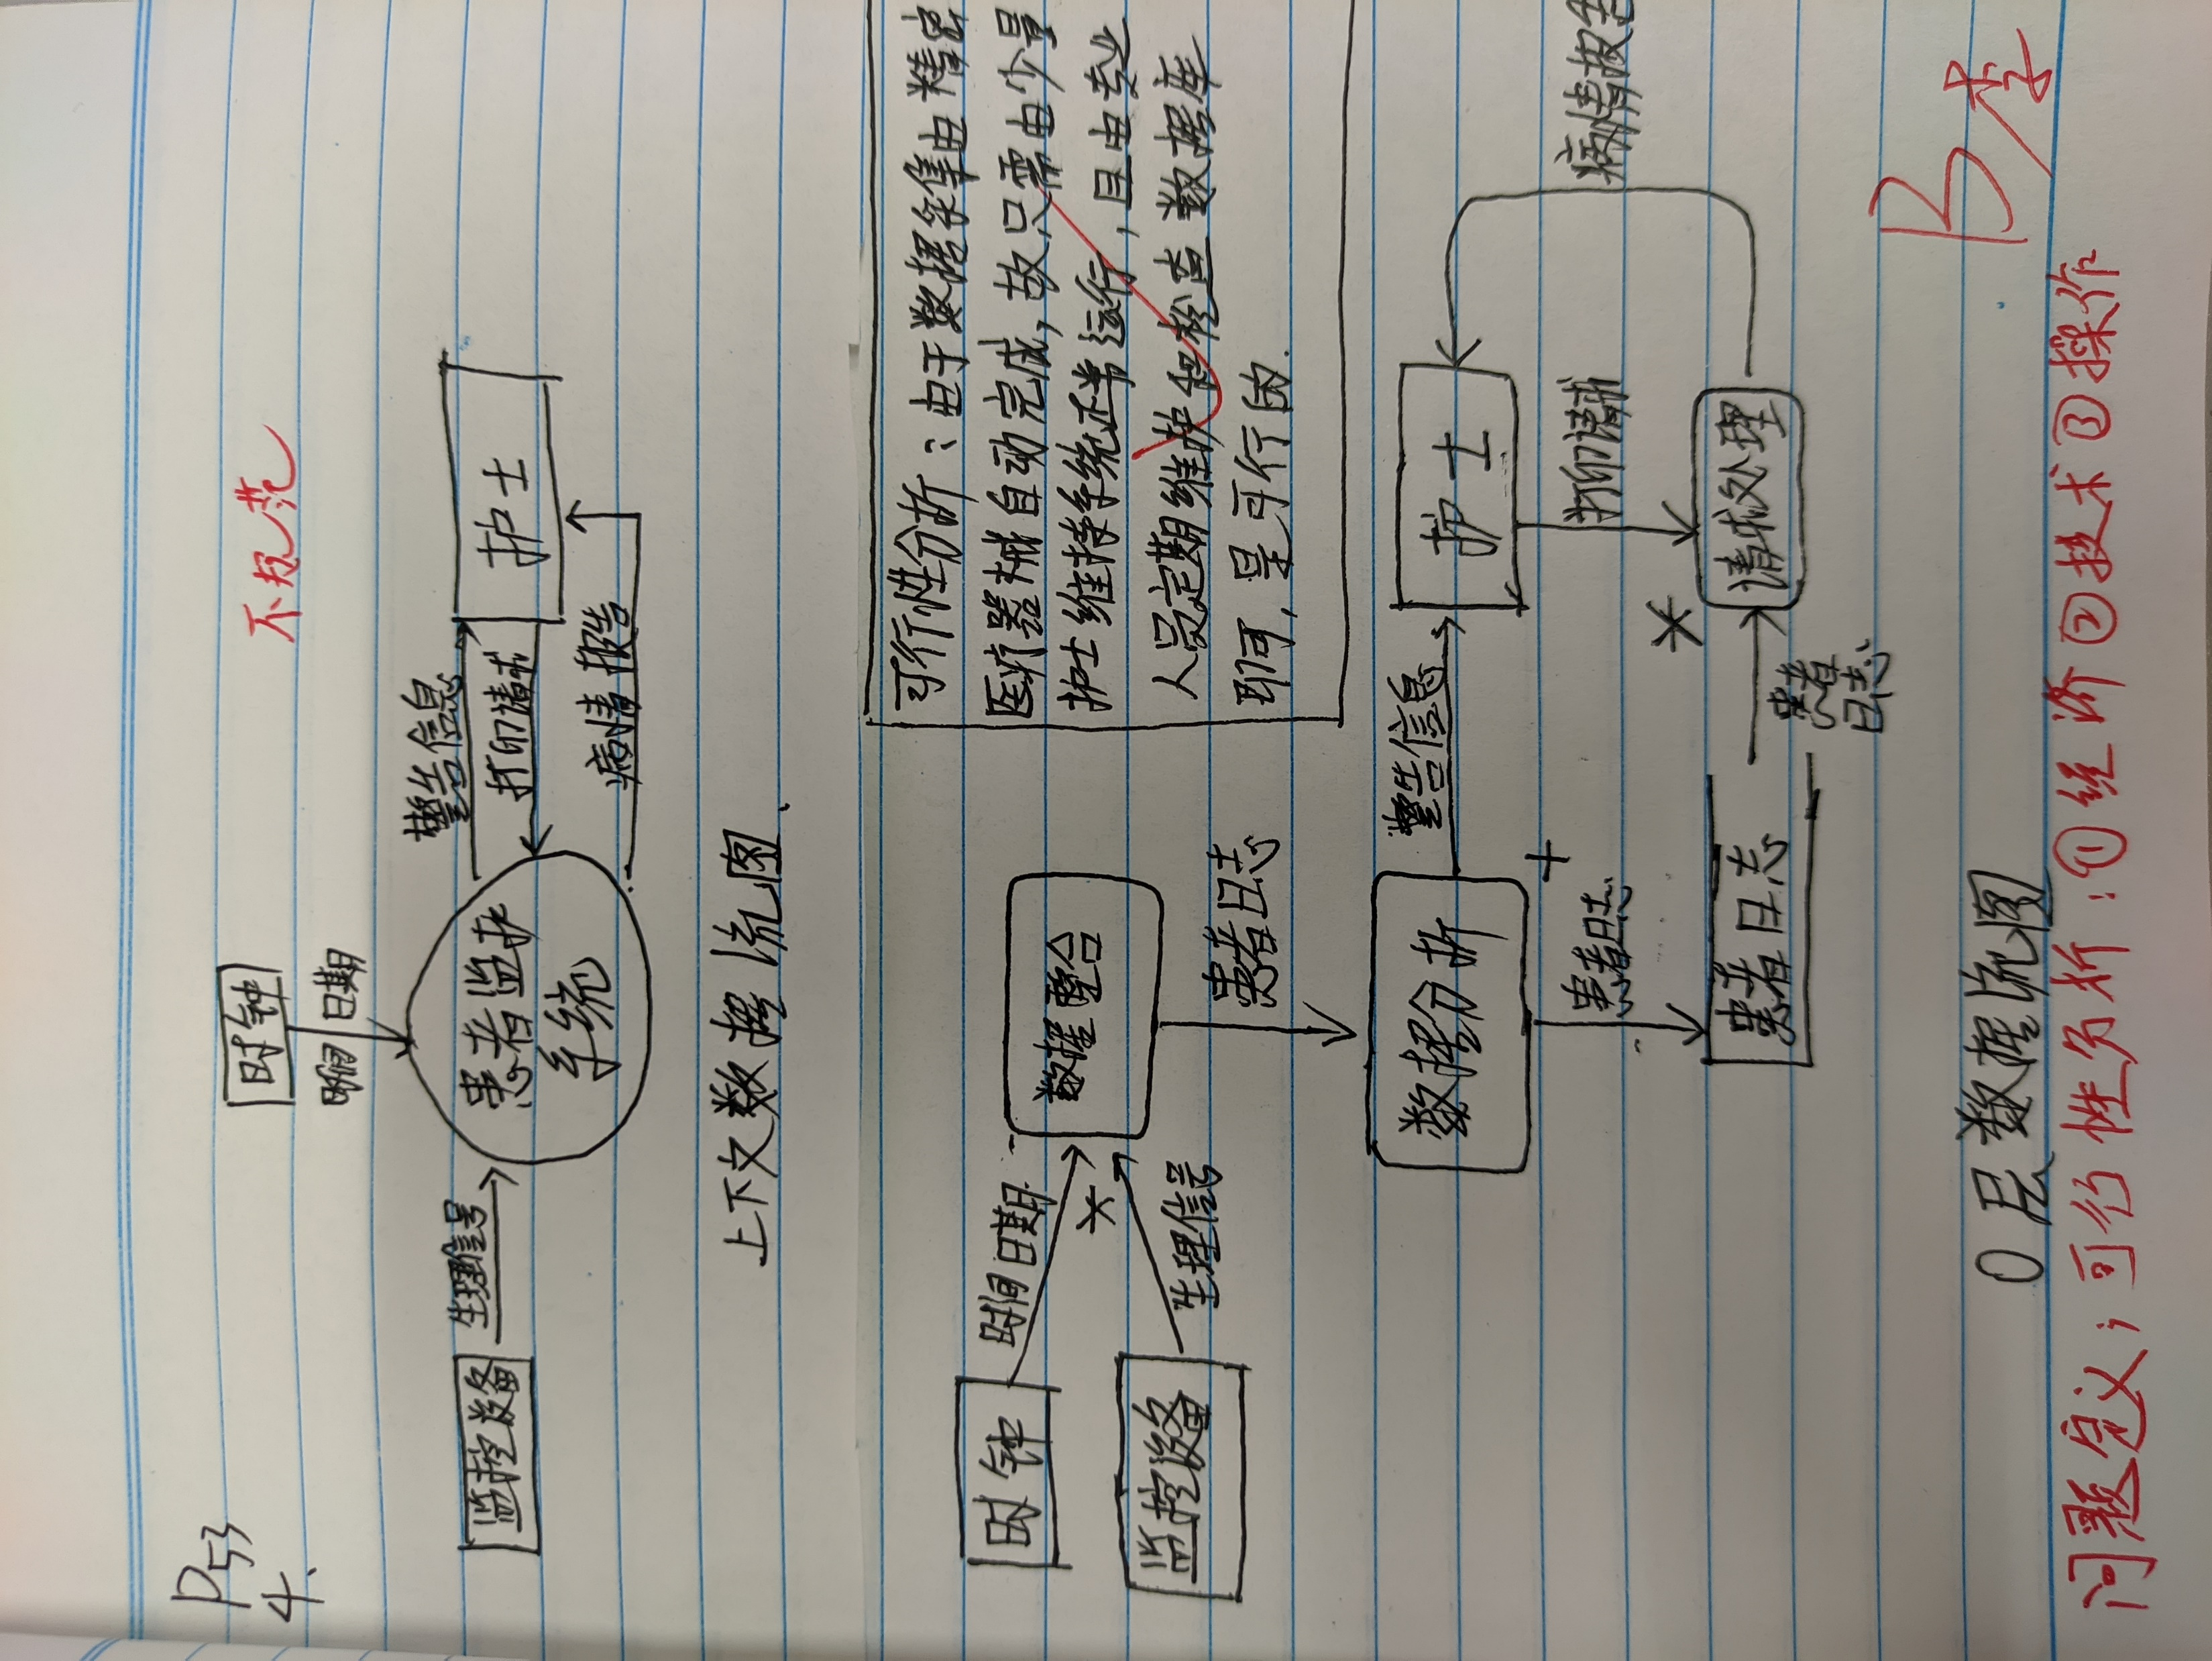 P53
4.
不规范
时钟
时间日期
监控设备
生理信号
患者监护
系统
警告信息
打印请求
病情报告
护士
上下文数据流图
可行性分析：由于数据采集由精密
医疗器械自动完成，故只需由少量
护士维持系统正常运行，且由至少
人员定期维护和检查数据库
即可，是可行的.
时钟
时间日期
*
监控设备
生理信号
数据整合
患者日志
数据分析
警告信息
+
患者日志
患者日志
患者
日志
护士
打印请求
*
请求处理
病情报告
0层数据流图
B
李
问题定义；可行性分析：①经济②技术③操作